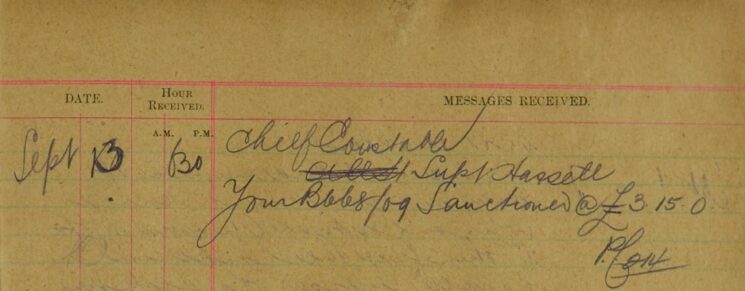 DATE. HOUR RECEIVED. MESSAGES RECEIVED.
A.M. P.M.
Sept 13 630 Chief Constable
Supt Hassell
Your B668/09 Sanctioned @ £3.15.0